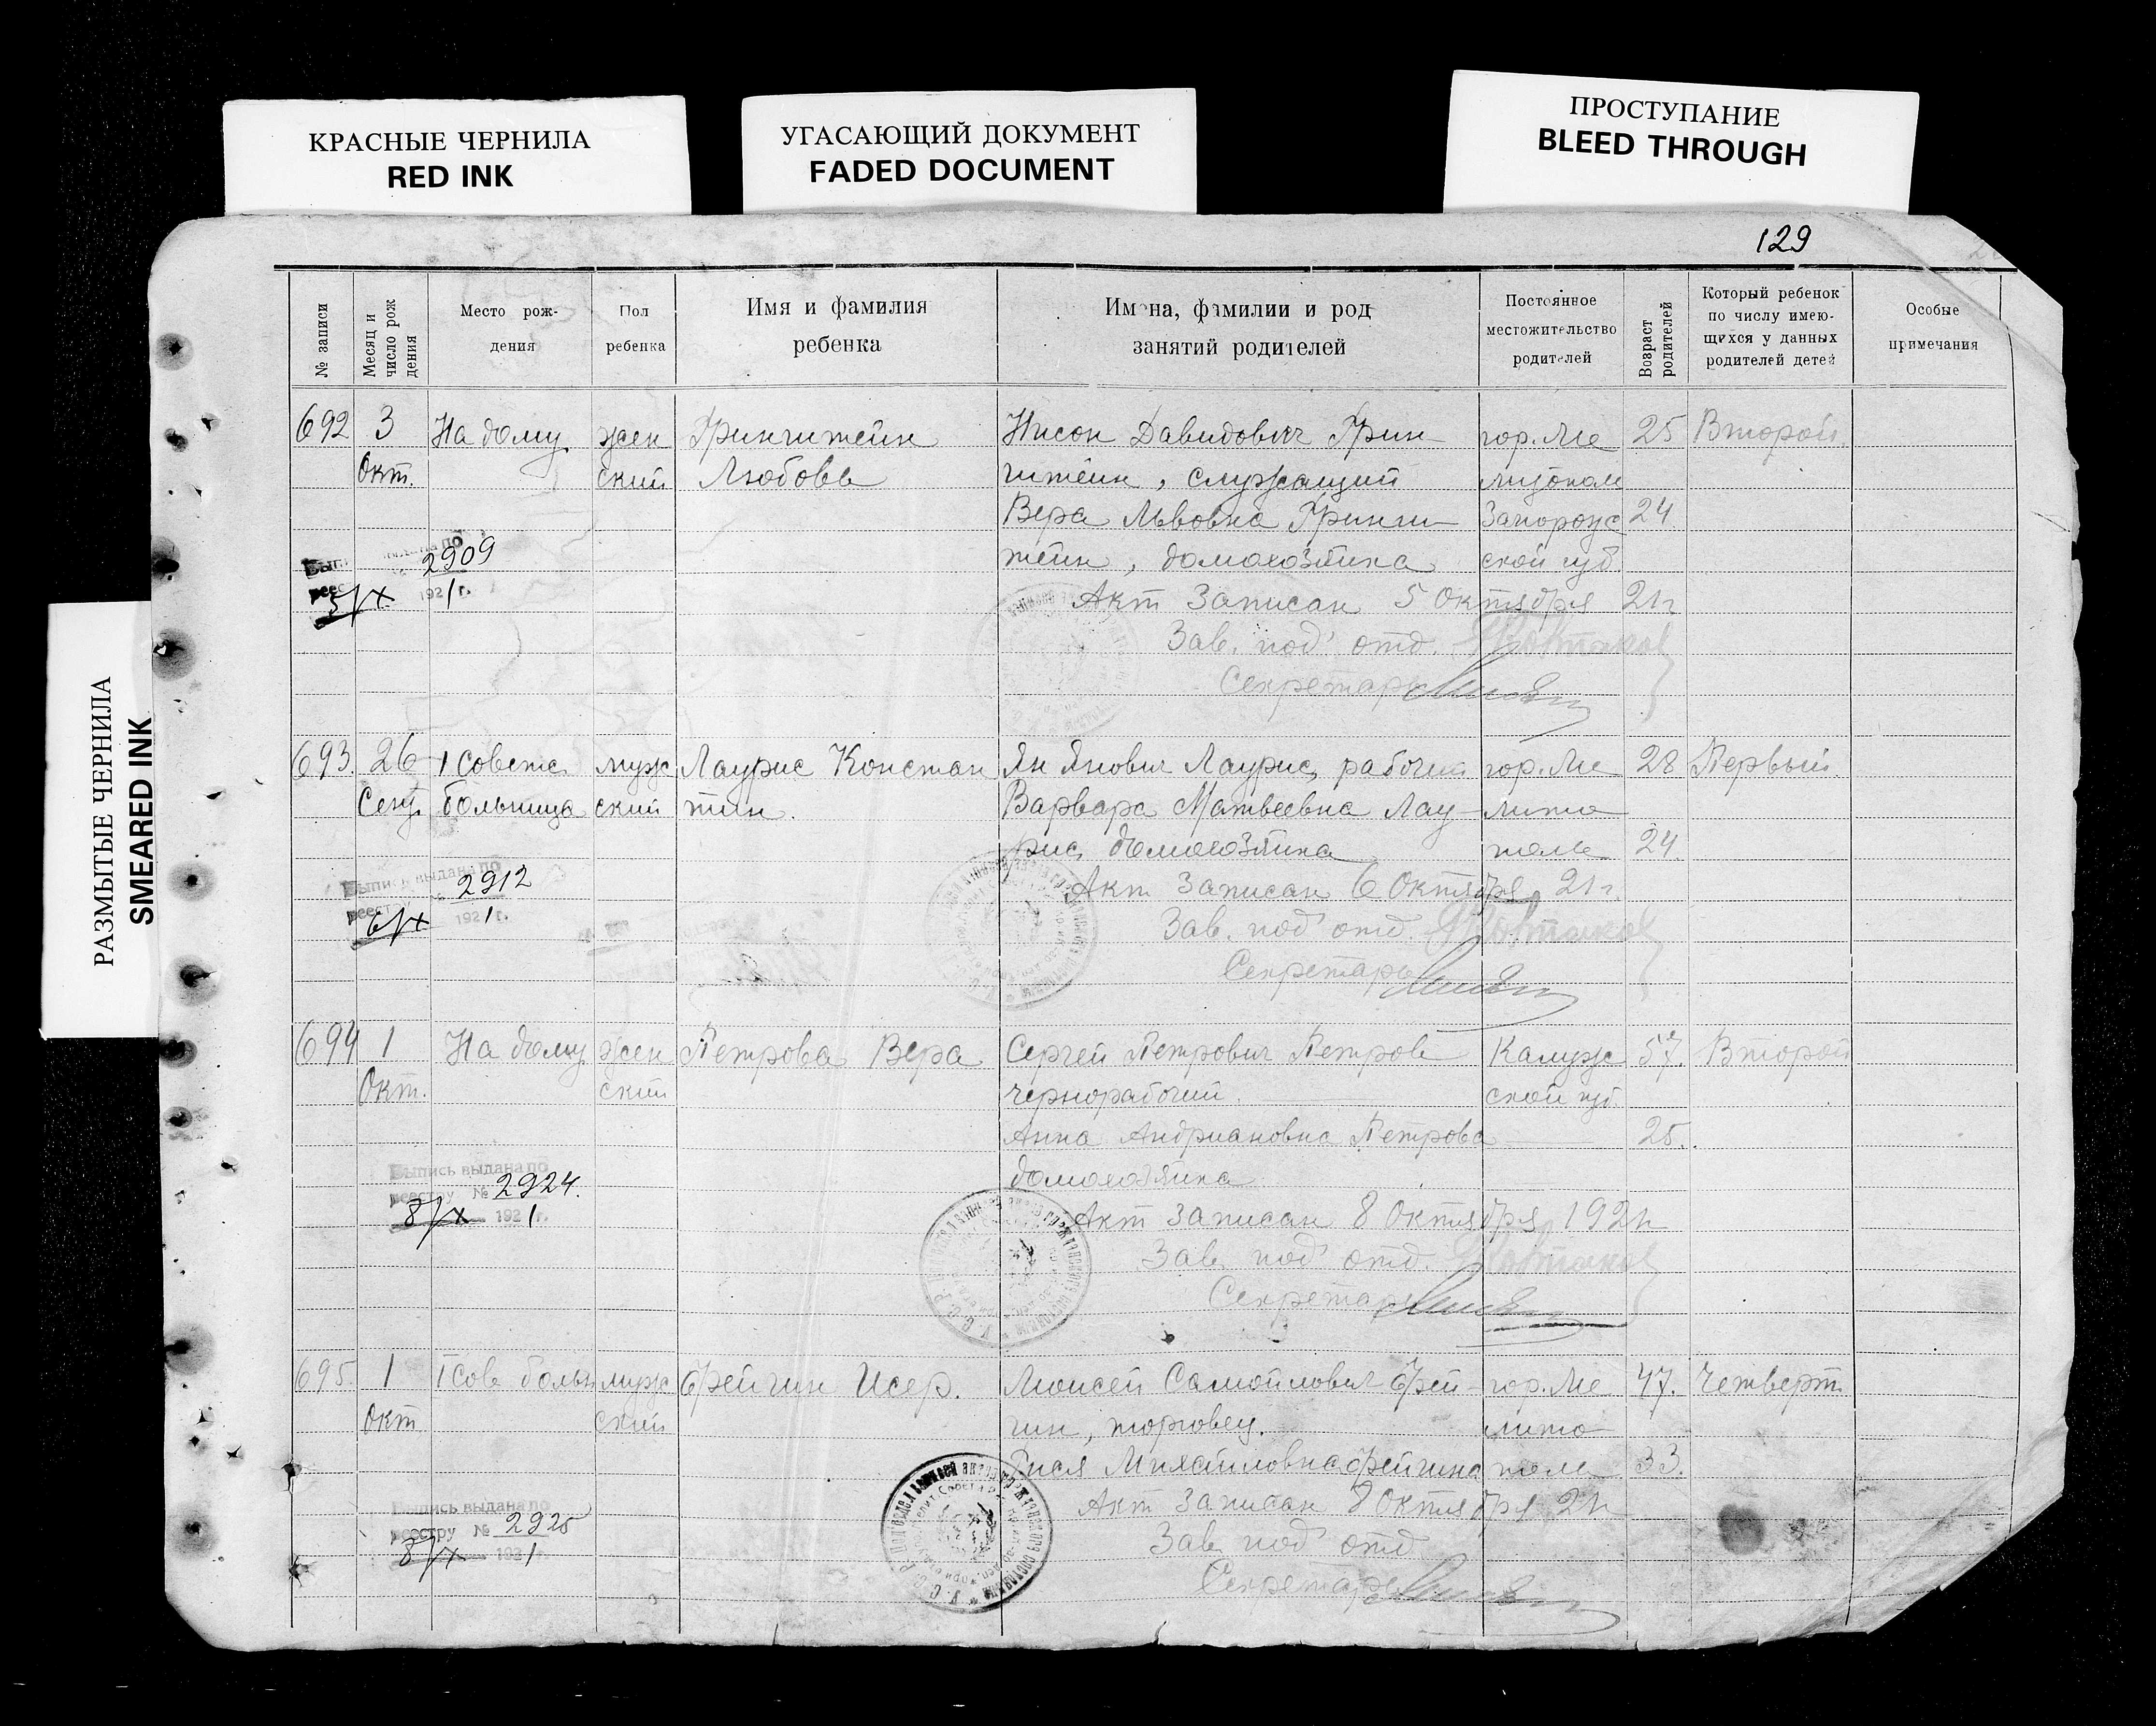 КРАСНЫЕ ЧЕРНИЛА
RED INK
УГАСАЮЩИЙ ДОКУМЕНТ
FADED DOCUMENT
ПРОСТУПАНИЕ
BLEED THROUGH
РАЗМЫТЫЕ ЧЕРНИЛА
SMEARED INK
129
№ записи
Месяц и число рождения
Место рож-
дения
Пол
ребенка
Имя и фамилия
ребенка
Имена, фамилии и род
занятий родителей
Постоянное
местожительство
родителей
Возраст
родителей
Который ребенок
по числу имею-
щихся у данных
родителей детей
Особые
примечания
692 3 На дому жен Грингштейн Нисон Давидович Грин- гор. Ме 25 Второй
Окт. ский Любовь гштейн, служащий литополь
Вера Львовна Гринг- Запорож 24
штейн, домохозяйка ской губ.
Выпись выдана по
реестру № 2909
5/X 1921 г.
Акт записан 5 Октября 21 г
Зав. под'отд.
Секретарь
693. 26 1 Советс. муж Лаурис Констан Ян Янович Лаурис, рабочий гор. Ме 28 Первый
Сент. больница ский тин. Варвара Матвеевна Лау- лито
рис, домохозяйка поль 24.
Выпись выдана по
реестру № 2912
6/X 1921 г.
Акт записан 6 Октября 21 г.
Зав. под'отд.
Секретарь
694 1 На дому жен Петрова Вера Сергей Петрович Петров Калуж 57. Второй
Окт. ский чернорабочий. ской губ.
Анна Андриановна Петрова 25.
домохозяйка
Выпись выдана по
реестру № 2924.
8/X 1921 г.
Акт записан 8 Октября 1921 г
Зав. под'отд.
Секретарь
695. 1 1 Сов больн муж Фрейгин Исер. Моисей Самойлович Фрей- гор. Ме 47. Четверт
Окт ский гин, торговец. лито
Михайловна Фрейгина поль 33.
Выпись выдана по
реестру № 2925
8/X 1921 г.
Акт записан 8 Октября 21 г
Зав. под'отд
Секретарь